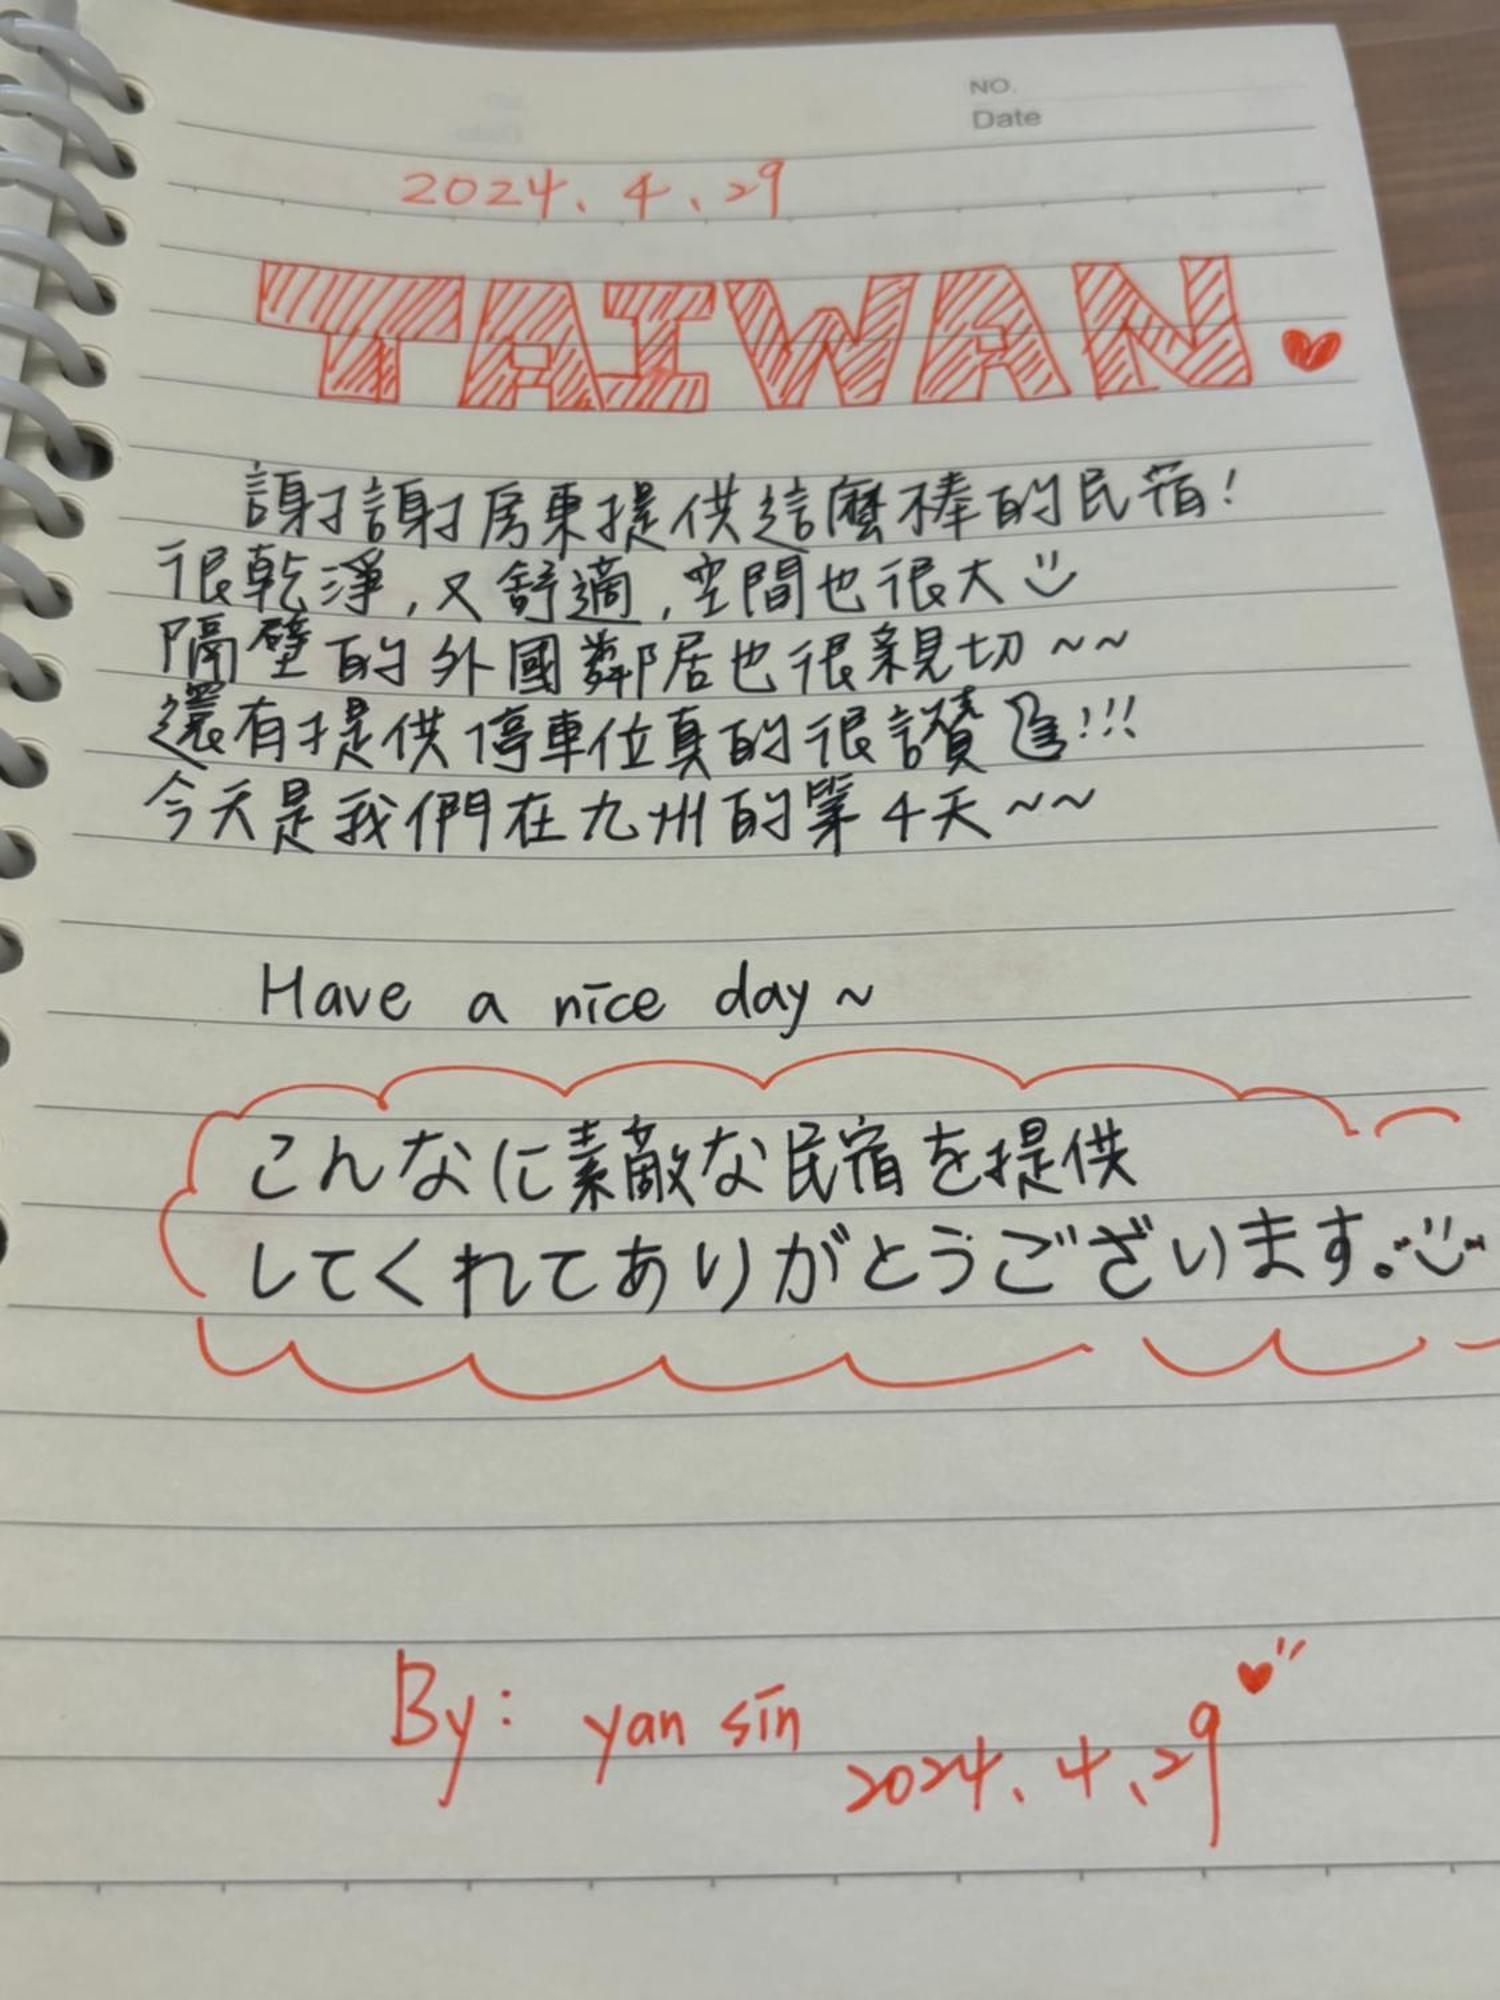 NO.
Date
2024.4.29
TAIWAN
謝謝房東提供這麼棒的民宿!
很乾淨,又舒適,空間也很大
隔壁的外國鄰居也很親切~~
還有提供停車位真的很讚!!!
今天是我們在九州的第4天~~
Have a nice day~
こんなに素敵な民宿を提供
してくれてありがとうございます。
By: yan sin
2024.4.29